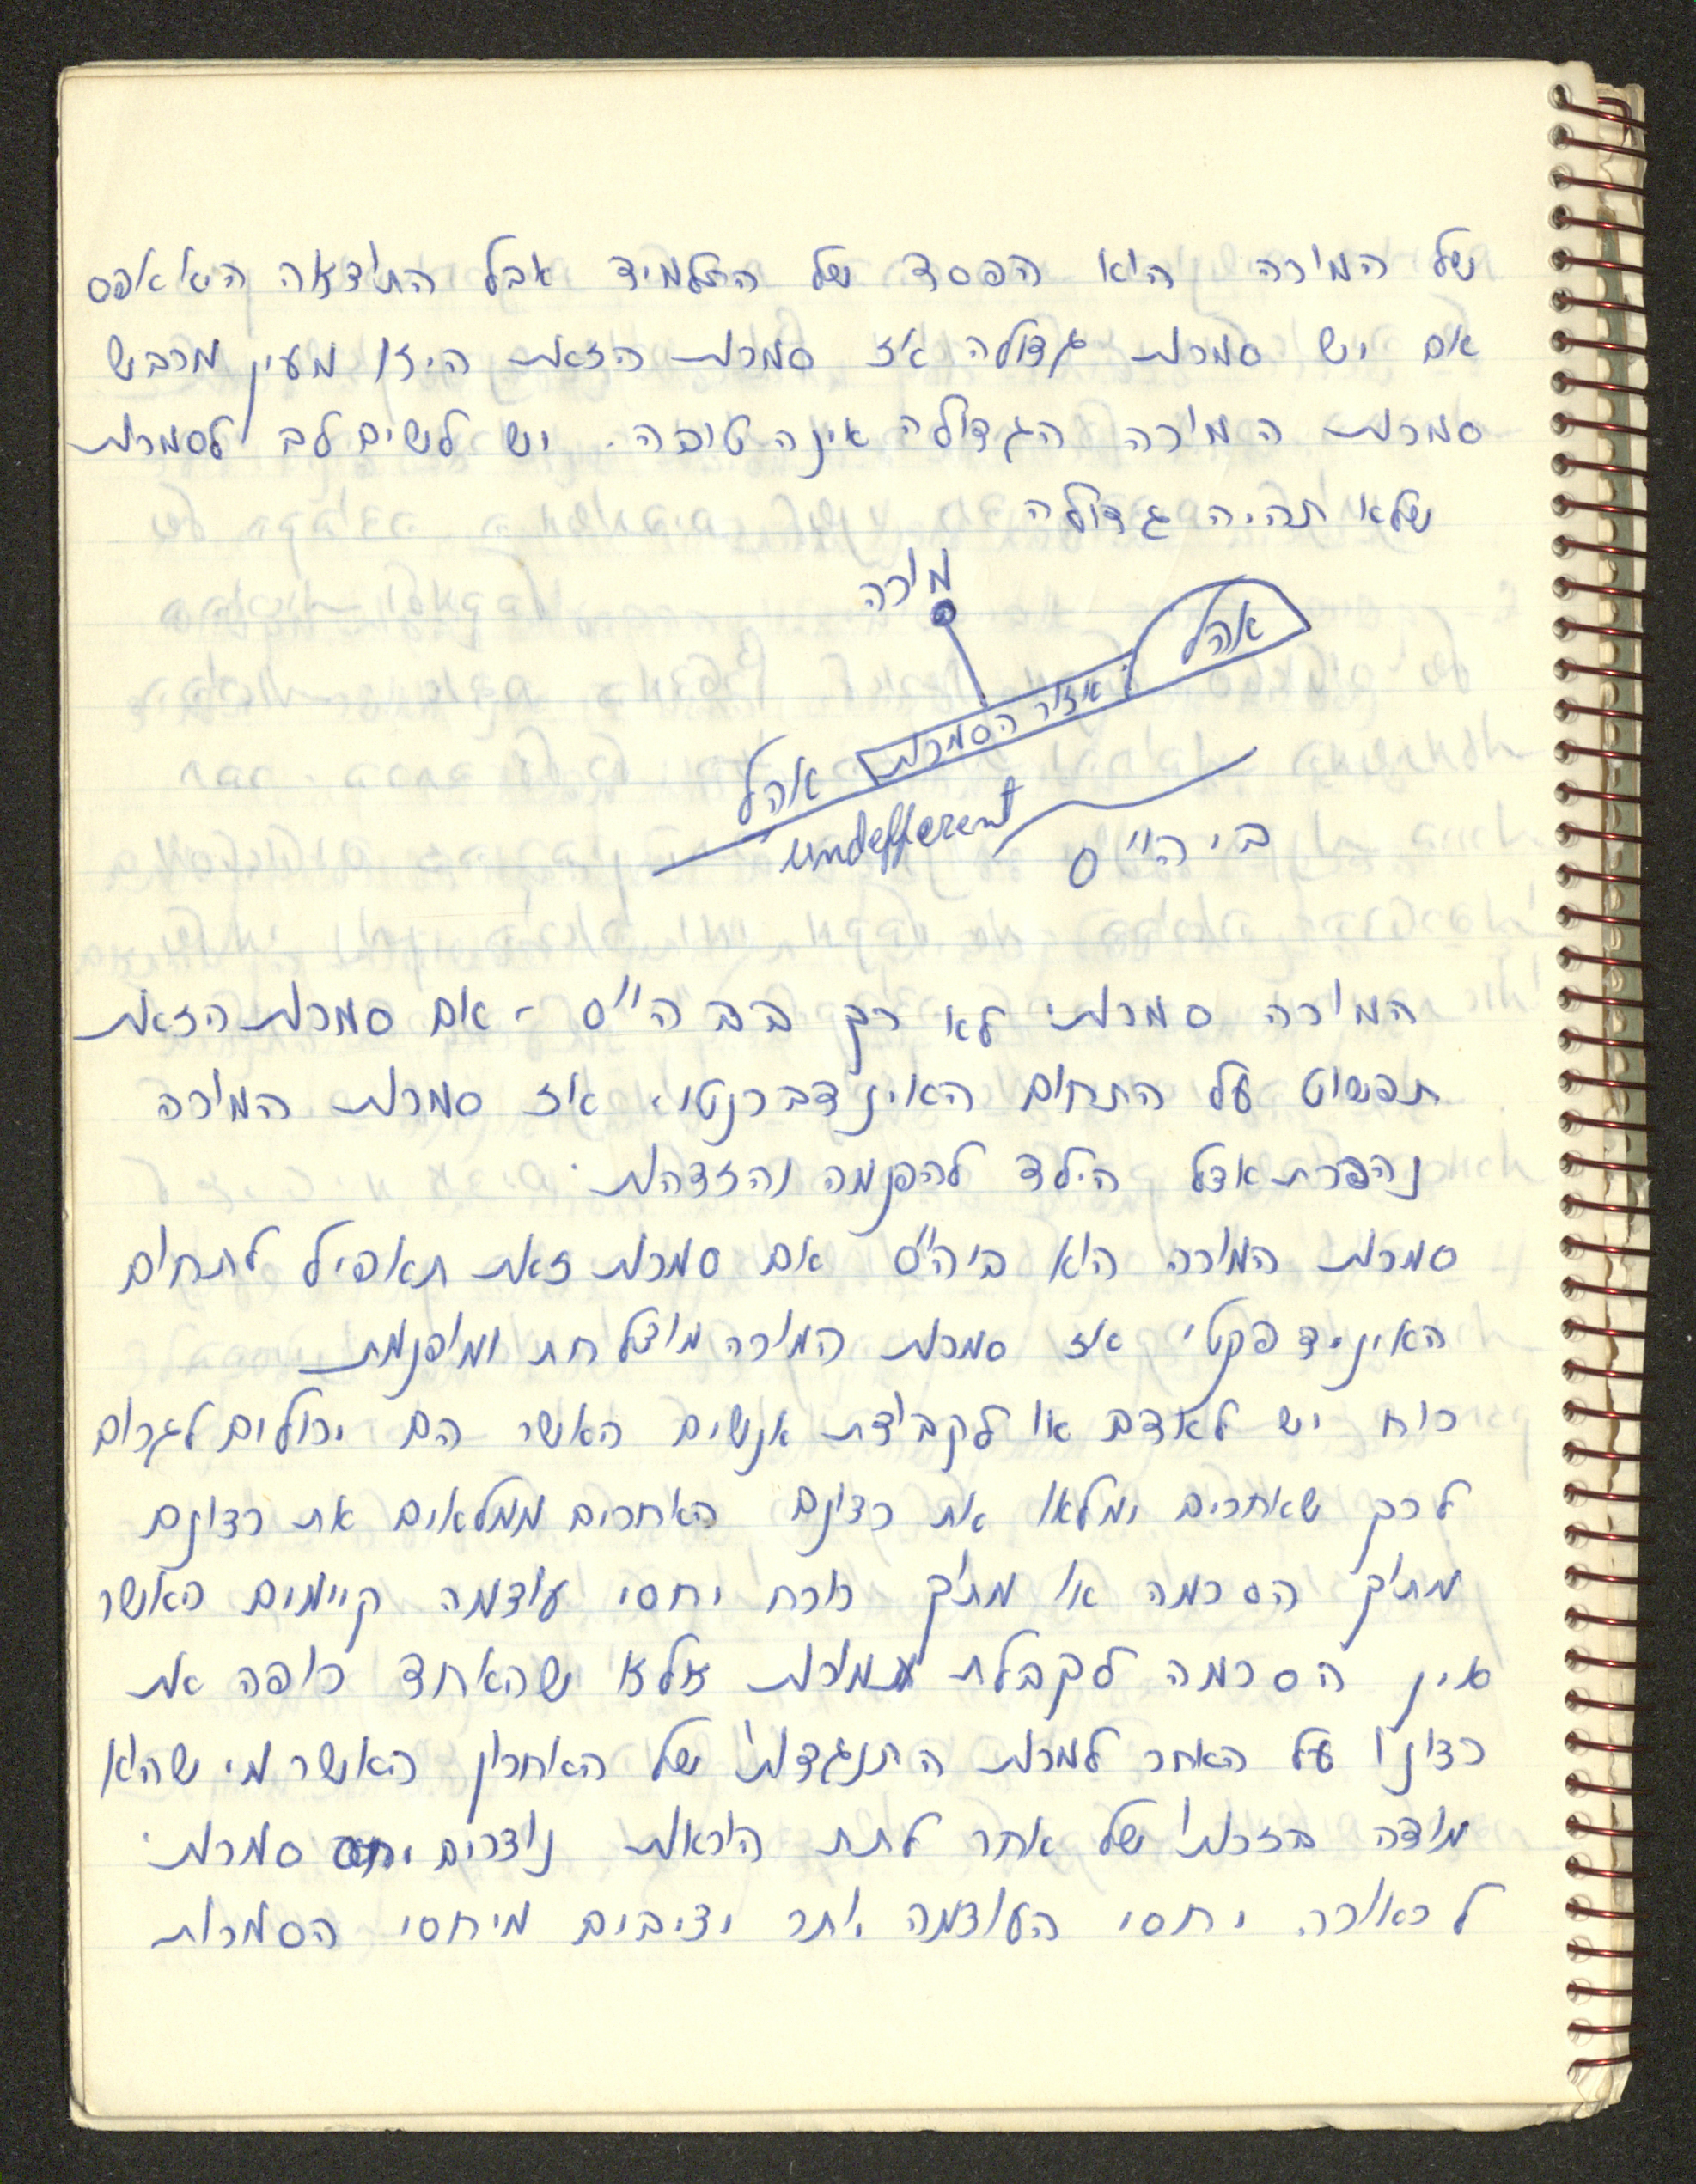 של המורה הוא הפסד של התלמיד אבל התוצאה היא אפס
אם יש סמכות גדולה אז סמכות הזאת היזו מעין מרביש
סמכות המורה הגדולה אינה טובה. יש לשים לב לסמכות
שלא תהיה גדולה
מורה
אהל
איזור הסמכות
אהל
undefferent
בי הי"ס
המורה סמכותי לא רק בב הי"ס - אם סמכות הזאת
תפשוט על התחום האינדברנטי, אז סמכות המורה
נהפכת אצל הילד להפנמה והזדהות.
סמכות המורה היא ביה"ס אם סמכות זאת תאפיל לתחום
האינידפקטי אז סמכות המורה מוצלחת ומופנמת
כוח יש לאדם או לקבוצת אנשים כאשר הם יכולים לגרום
לכך שאחרים ימלאו את רצונם האחרים ממלאים את רצונם
מתוך הסכמה או מתוך כורח יחסי עוצמה קיימים כאשר
אין הסכמה לקבלת מרות אלא שהאחד כופה את
רצונו על האחר למרות התנגדותו של האחרון כאשר מי שהוא
מודה בזכותו של אחר לתת הוראות נוצרים יחסי סמכות.
לכאורה. יחסי העוצמה יותר יציבים מיחסי הסמכות